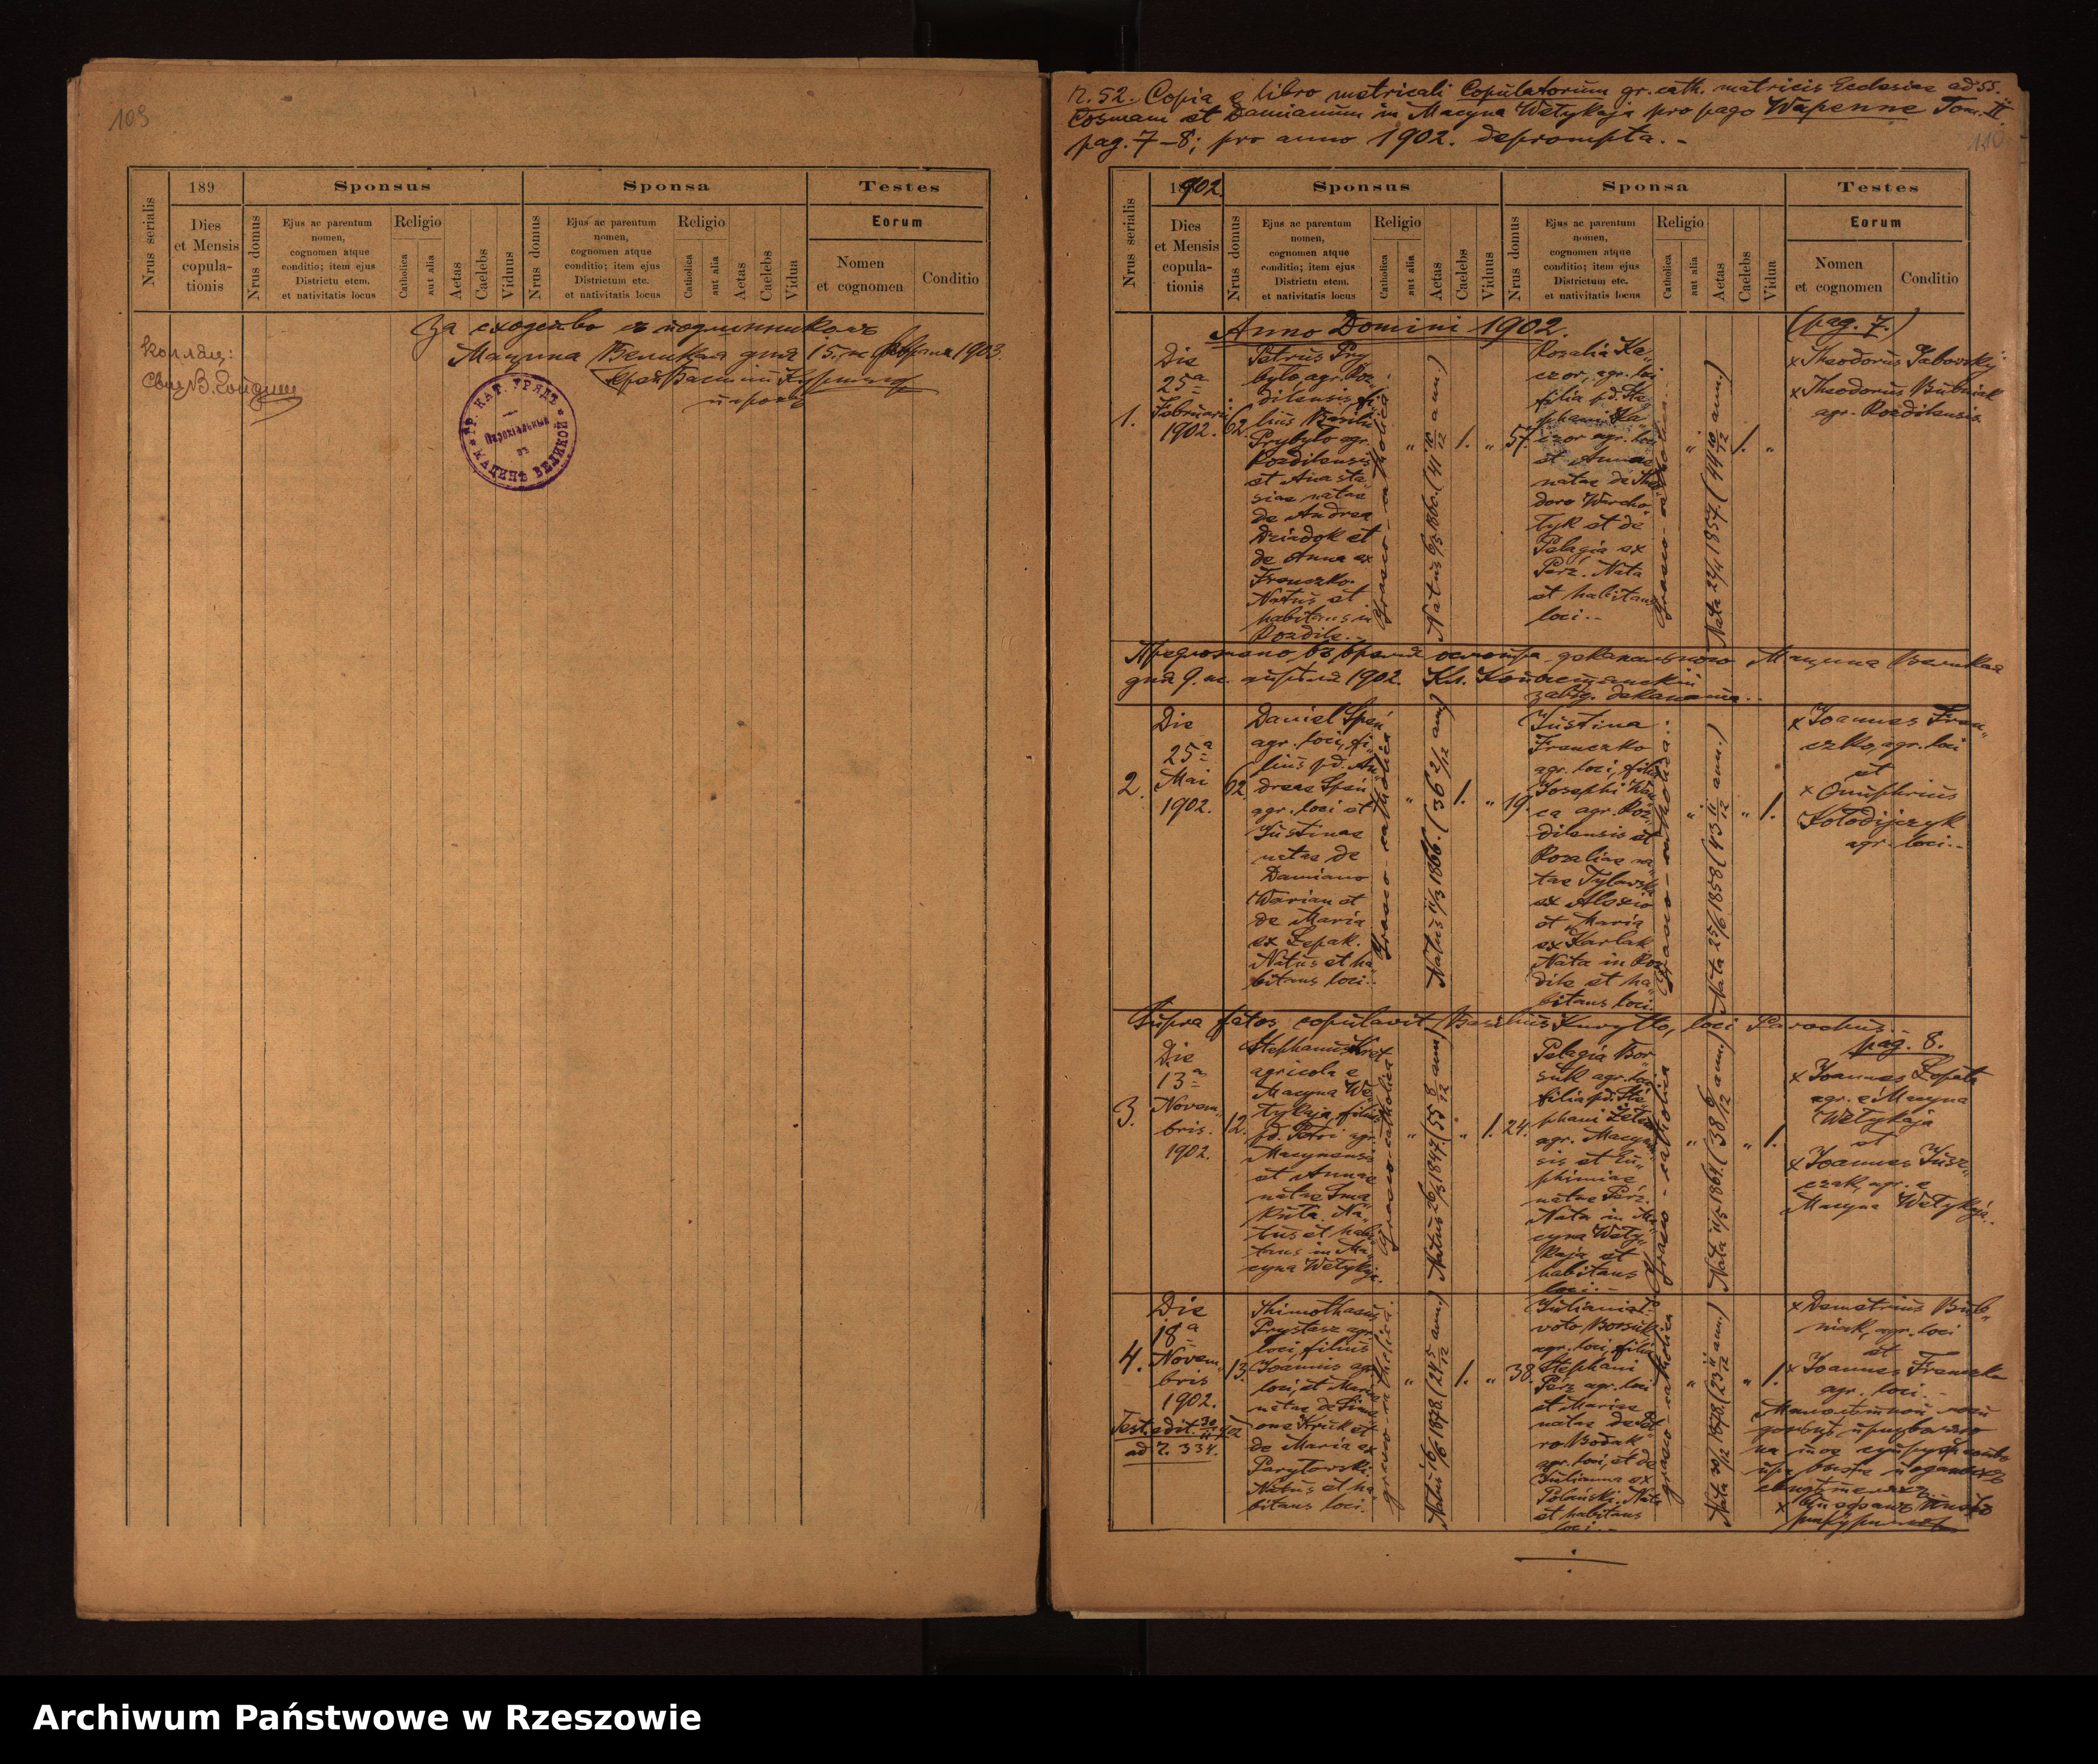 109
189
Sponsus
Sponsa
Testes
Nrus serialis
Dies
et Mensis
copula-
tionis
Nrus domus
Ejus ac parentum
nomen,
cognomen atque
conditio; item ejus
Districtu etcm.
et nativitatis locus
Religio
Catholica
aut alia
Aetas
Caelebs
Viduus
Nrus domus
Ejus ac parentum
nomen,
cognomen atque
conditio; item ejus
Districtum etc.
et nativitatis locus
Religio
Catholica
aut alia
Aetas
Caelebs
Vidua
Eorum
Nomen
et cognomen
Conditio
За сходство съ подлинникомъ
Мацина Великая дня 15. м. 1903.
ГР. КАТ. УРЯДЪ
Парохіальный
въ
МАЦИНѢ ВЕЛИКОЙ
N. 52. Copia e libro metricali Copulatorum gr. cath. matricis Ecclesiae ad SS.
Cosmam et Damianum in Macyna Wełykaja pro pago Wapenne Tom. II.
pag. 7-8; pro anno 1902. deprompta. -
110
1902.
Sponsus
Sponsa
Testes
Nrus serialis
Dies
et Mensis
copula-
tionis
Nrus domus
Ejus ac parentum
nomen,
cognomen atque
conditio; item ejus
Districtum etcm.
et nativitatis locus
Religio
Catholica
aut alia
Aetas
Caelebs
Viduus
Nrus domus
Ejus ac parentum
nomen,
cognomen atque
conditio; item ejus
Districtum etc.
et nativitatis locus
Religio
Catholica
aut alia
Aetas
Caelebs
Vidua
Eorum
Nomen
et cognomen
Conditio
Anno Domini 1902.
(pag. 7.)
1.
Die
25a
Februarii
1902.
62.
Petrus Pry
było, agr. Roz
dilensis, fi
lius Basilii
Prybyło agr.
Rozdilensis
et Anasta
siae natae
de Andrea
Dziadyk et
de Anna ex
Frenczko.
Natus et
habitans in
Rozdile. -
Graeco-catholica
Natus 6/3 1860. (41 10/12 ann.)
1.
57.
Rosalia Ka
czor, agr. loci
filia pd. Ste
phani Ka
czor agr. loci
et Annae
natae de Theo
doro Worcho
łyk et de
Pelagia ex
Perż. Nata
et habitans
loci. -
Graeco-catholica
Nata 22/4 1857. (44 10/12 ann.)
1.
x Theodorus Jabovsky
x Theodorus Bubniak
agr. Rozdilensis
Предложено въ время осмотра деканального Мацина Великая
дня 9. м. 1902.
2.
Die
25a
Mai
1902.
62.
Daniel Speń
agr. loci, fi
lius pd. An
dreae Speń
agr. loci et
Justinae
natae de
Damiano
Warian et
de Maria
ex Łepak.
Natus et ha
bitans loci. -
Graeco-catholica
Natus 11/3 1866. (36 2/12 ann.)
1.
19.
Justina
Frenczko
agr. loci, filia
Josephi
agr. Roz
dilensis et
Rosaliae na
tae Tylawski
ex Alexio
et Maria
ex Karlak
Nata in Roz
dile et ha
bitans loci.
Graeco-catholica
Nata 25/6 1858 (43 11/12 ann.)
1.
x Joannes Fren
czko, agr. loci
et
x Onuphrius
Kołodijczyk
agr. loci. -
Supra fatos copulavit Basilius Kuryłło, loci Parochus. -
pag. 8.
3.
Die
13a
Novem
bris.
1902.
12.
Stephanus Kret
agricola e
Macyna We
łykaja, filius
pd. Petri agr.
Macynensis
et Annae
natae Sma
kuła. Na
tus et habi
tans in Ma
cyna Wełykaja.
Graeco-catholica
Natus 26/3 1847. (55 8/12 ann.)
1.
24.
Pelagia Bor
suk agr. loci
filia pd. Ste
phani
agr. Macynen
sis et Eu
phimiae
natae Perż.
Nata in Ma
cyna Wełyk
kaja et
habitans
loci. -
Graeco-catholica
Nata 11/5 1864. (38 6/12 ann.)
1.
x Joannes Łopata
agr. e Macyna
Wełykaja
et
x Joannes Jusz
czak, agr. e
Macyna Wełykaja. -
4.
Die
18a
Novem
bris
1902.
Test. edit. 30/11 902
ad N. 334.
13.
Thimotheus
Prystasz agr.
loci, filius
Joannis agr.
loci, et Mariae
natae de Sime
one Kruk et
de Maria ex
Paryłowski.
Natus et ha
bitans loci.
graeco-catholica.
Natus 16/6 1878. (24 5/12 ann.)
1.
38.
Juliania 1.
voto Borsuk
agr. loci, filia
Stephani
Perż agr. loci
et Mariae
natae de Pet
ro Bodak
agr. loci, et de
Julianna ex
Polański. Nata
et habitans
loci. -
graeco-catholica
Nata 30/12 1878. (23 11/12 ann.)
1.
x Demetrius Bub
niak, agr. loci
et
x Joannes Frenczko
agr. loci. -
Archiwum Państwowe w Rzeszowie